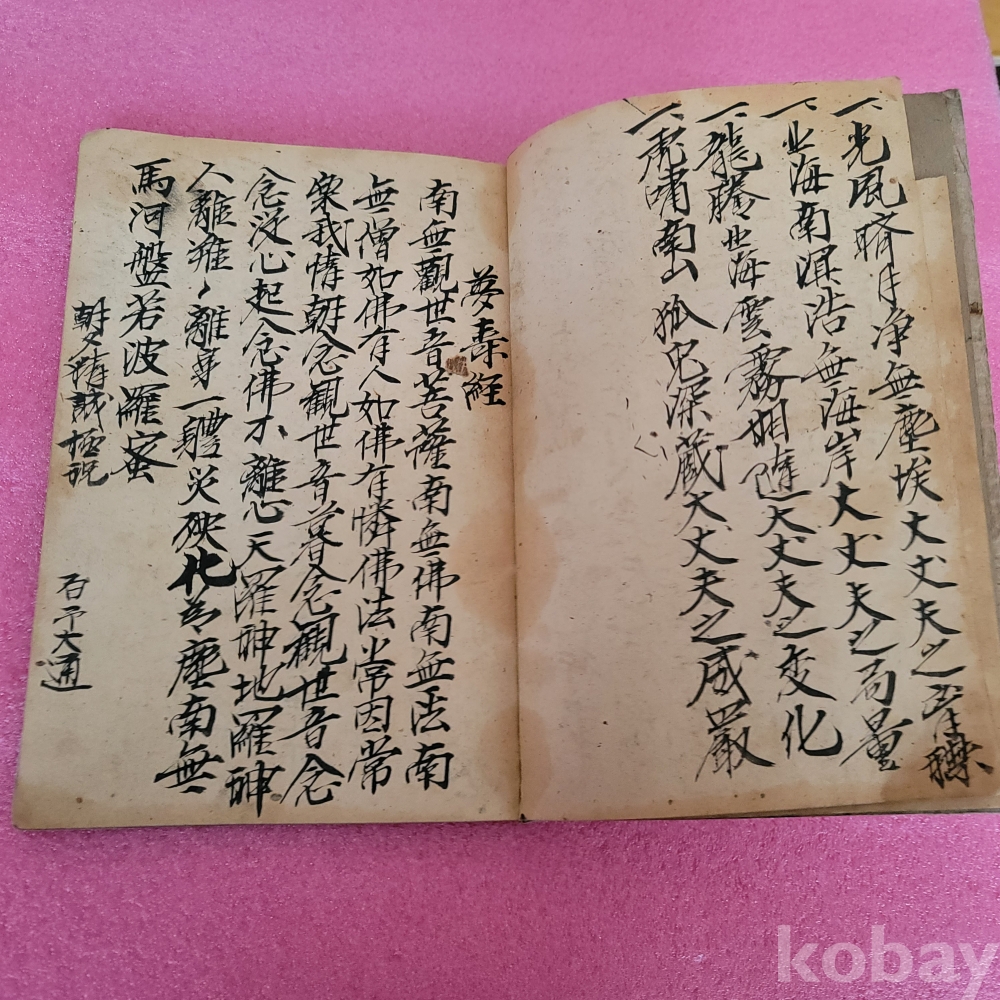 一、光風霽月淨無塵埃大丈夫之胷襟
一、北海南溟浩無海岸大丈夫之局量
一、龍騰北海雲霧相隨大丈夫之变化
一、虎嘯南山狐兒深藏大丈夫之威嚴
夢泰經
南無觀世音菩薩南無佛南無法南
無僧如佛有人如佛有憐佛法常因常
樂我情朝念觀世音暮念觀世音念
念泛心起念佛不離心天羅神地羅神
人離難〻離身一軆災殃化為塵南無
馬河盤若波羅蜜
朝夕精誠極祝
石予大通
kobay